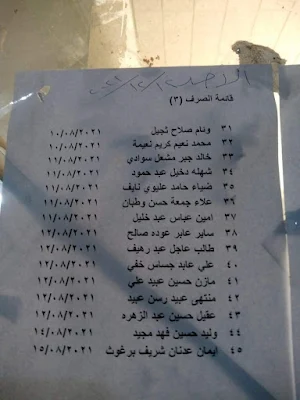 الأحد ٢٠٢١/١٢/١٢
قائمة الصرف (٣)
٣١ وئام صلاح ثجيل ١٠/٠٨/٢٠٢١
٣٢ محمد نعيم كريم نعيمة ١٠/٠٨/٢٠٢١
٣٣ خالد جبر مشعل سوادي ١١/٠٨/٢٠٢١
٣٤ شهله دخيل عبد حمود ١١/٠٨/٢٠٢١
٣٥ ضياء حامد عليوي نايف ١١/٠٨/٢٠٢١
٣٦ علاء جمعة حسن وطبان ١١/٠٨/٢٠٢١
٣٧ امين عباس عبد خليل ١١/٠٨/٢٠٢١
٣٨ ساير عابر عوده صالح ١٢/٠٨/٢٠٢١
٣٩ طالب عاجل عبد رهيف ١٢/٠٨/٢٠٢١
٤٠ علي عابد جساس خفي ١٢/٠٨/٢٠٢١
٤١ مازن حسين عبيد علي ١٢/٠٨/٢٠٢١
٤٢ منتهى عبيد رسن عبيد ١٢/٠٨/٢٠٢١
٤٣ عقيل حسين عبد الزهره ١٢/٠٨/٢٠٢١
٤٤ وليد حسين فهد مجيد ١٤/٠٨/٢٠٢١
٤٥ ايمان عدنان شريف برغوث ١٥/٠٨/٢٠٢١